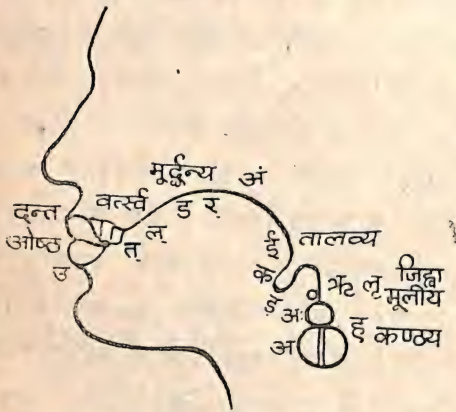 मूर्द्धन्य अं
दन्त वर्त्स्व ड र्
ओष्ठ ल् तालव्य
उ त् ई
क्
ऋ लृ जिह्वा
मूलीय
अः
अ ह् कण्ठ्य